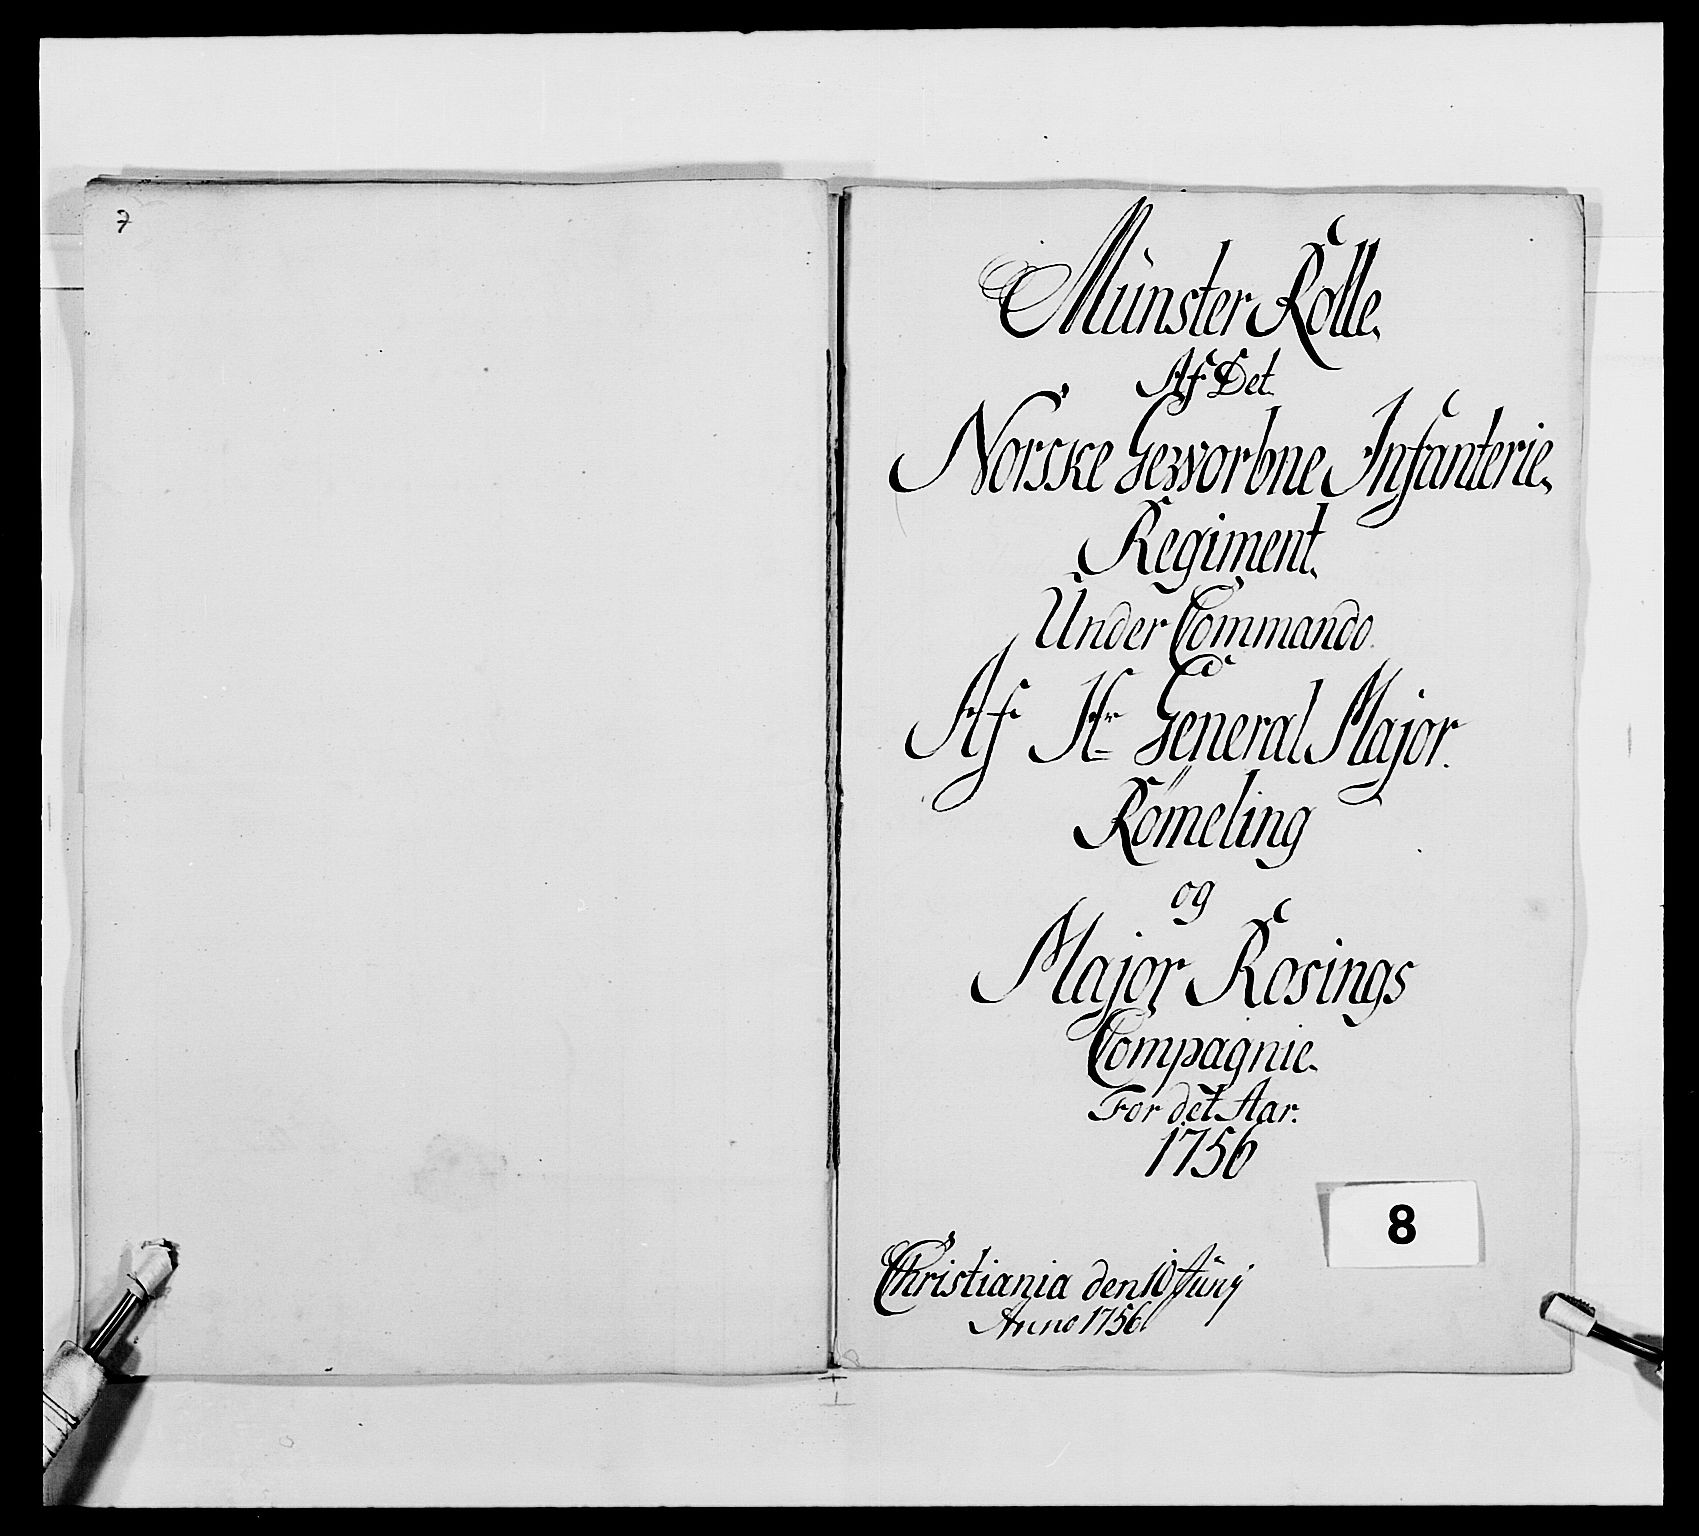 7
Münster Rolle.
Af Det.
Norske Geworbne Infanterie.
Regiment.
Under Commando.
Af Hr General Major.
Römeling
og
Major Rosings
Compagnie.
For det Aar.
1756
8
Christiania den 10 Junj
Anno 1756